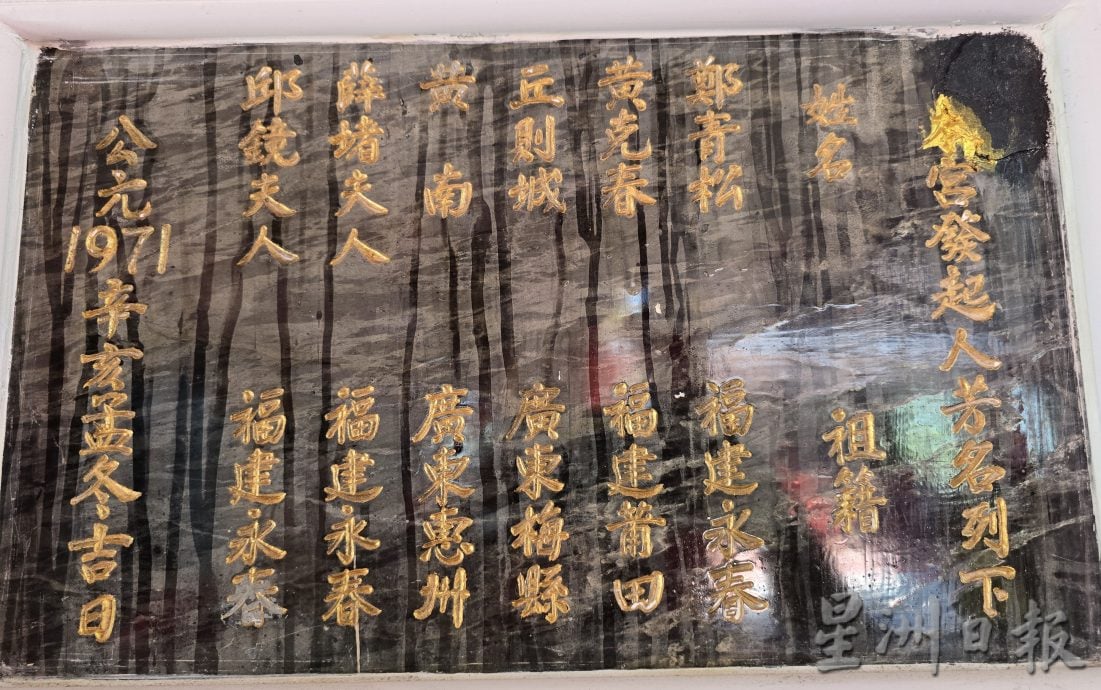 本宮發起人芳名列下
姓名 祖籍
鄭青松 福建永春
黃克春 福建莆田
丘則城 廣東梅縣
黃南 廣東惠州
薛堵夫人 福建永春
邱鏡夫人 福建永春
公元1971辛亥孟冬吉日
星洲日報